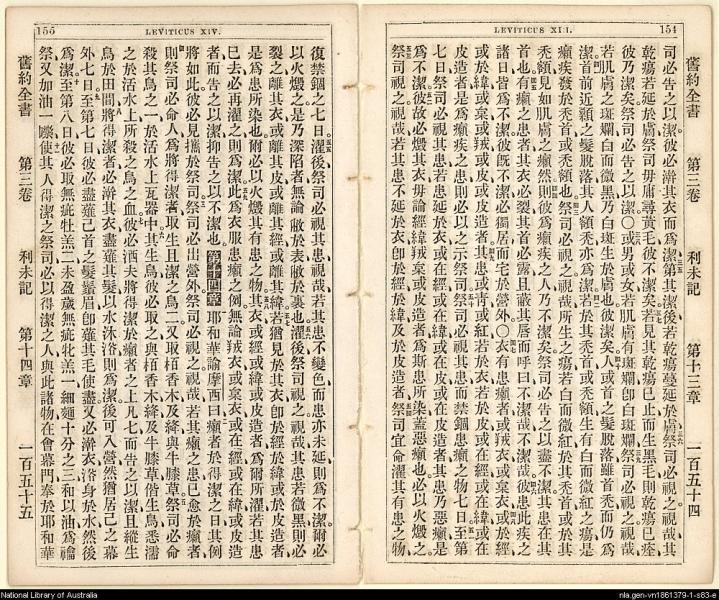 LEVITICUS XIII.
154
舊約全書 第三卷 利未記 第十三章 一百五十四
司必告之以潔彼必澣其衣而爲潔第其潔後若乾瘍蔓延於膚祭司必視之視哉其
乾瘍若延於膚祭司毋庸尋黃毛彼不潔矣若見其乾瘍已止而生黑毛則乾瘍已痊
彼乃潔矣祭司必告之以潔〇或男或女若肌膚有斑斕卽白斑斕祭司必視之視哉
若肌膚之斑斕白而微黑乃白斑生於膚也彼潔矣人或首之髮脫落雖首禿而仍爲
潔首前近顙之髮脫落其人額禿亦爲潔若於其禿首或禿額生有白而微紅之瘍是
癩疾發於禿首或禿額也祭司必視之視哉所生之瘍若白而微紅於其禿首或於其
禿額見如肌膚之癩然則彼爲癩疾之人乃不潔矣祭司必告之以盡不潔其患在其
首也有癩之患者其衣必裂其首必露且蔽其唇而呼曰不潔哉不潔哉彼患此疾之
諸日皆爲不潔彼旣不潔必獨居而宅於營外〇衣有患癩者或羢衣或枲衣或於經
或於緯或枲或羢或皮或皮造者其患或靑或紅若於衣或於皮或在經或在緯或在
皮造者是爲癩疾之患則必以之示祭司祭司必視其患而禁錮患癩之物七日至第
七日祭司必視其患若其患延於衣或經或緯或皮或皮造者其患乃惡癩是
爲不潔彼故必燬其衣毋論經緯羢枲或皮造者爲斯患所染蓋惡癩也必以火燬之
祭司視之視哉若其患不延於衣卽於經於緯及於皮造者祭司宜命濯其有患之物
155
LEVITICUS XIV.
復禁錮之七日濯後祭司必視其患視哉若其患不變色而患亦未延則爲不潔爾必
以火燬之是乃深陷者無論敝於表敝於裏也濯後祭司視之視哉其患若微黑則必
裂之離其衣或離其皮或離其經或離其緯若猶見於其衣卽於經於緯或於皮造者
是爲患所染也爾必以火燬其有患之物其衣或經或緯或皮造者爲所濯若其患
已去必再濯之則爲潔此爲衣服患癩之例無論羢衣或枲衣或在經或在緯或皮造
者而告之以潔抑告之以不潔也第十四章耶和華諭摩西曰癩者於得潔之日其例
將如此彼必見攜於祭司祭司必出營外祭司必視之視哉若其癩之患已愈於癩者
則祭司必命人爲將得潔者取生且潔之鳥二又取栢香木及絳與牛膝草祭司必命
殺其鳥之一於活水上瓦器中其生鳥彼必取之與栢香木絳及牛膝草偕生鳥悉濡
之於活水上所殺之鳥之血彼必洒夫將得潔於癩者之上凡七而告之以潔且縱生
鳥於田間將得潔者必澣其衣盡薙其髮以水沐浴則爲潔後可入營然猶居己之幕
外七日至第七日彼必盡薙己首之髮鬚眉卽薙其毛使盡又必澣衣浴身於水然後
爲潔至第八日彼必取無疵牡羔二未盈歲無疵牝羔一細麵十分之三和以油爲禴
祭又加油一嘞使其人得潔之祭司必以得潔之人與此諸物在會幕門奉於耶和華
舊約全書 第三卷 利未記 第十四章 一百五十五
National Library of Australia
nla.gen-vn1861379-1-s83-e